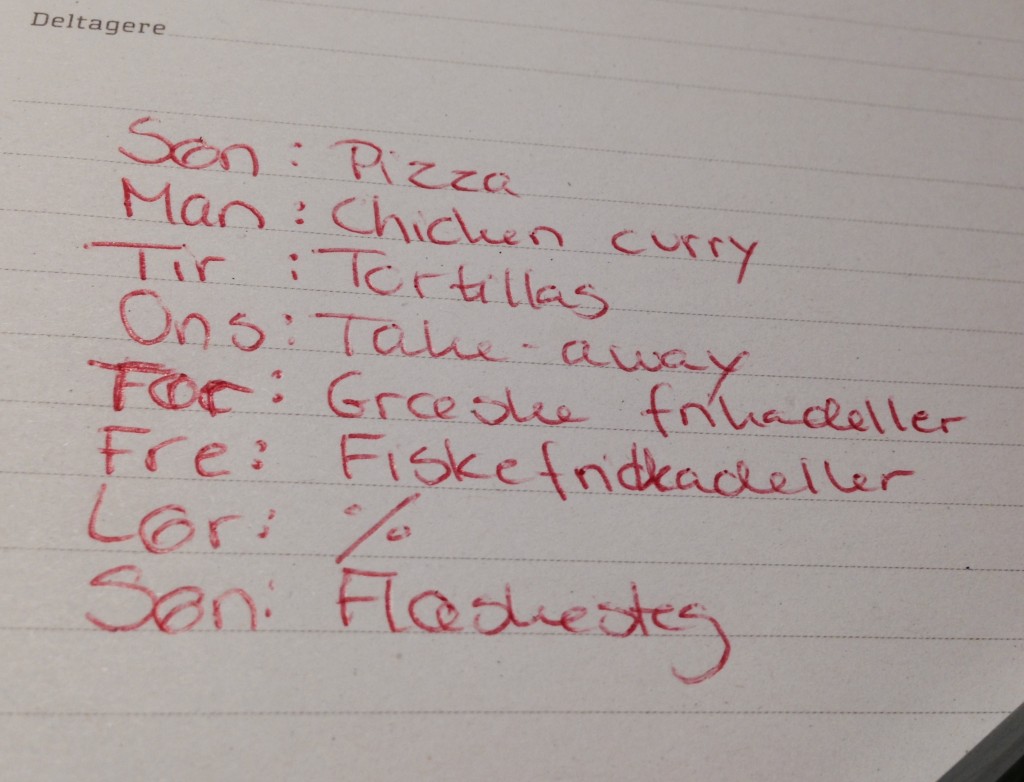 Deltagere
Søn: Pizza
Man: Chicken curry
Tir: Tortillas
Ons: Take-away
Tor: Græske frikadeller
Fre: Fiskefrikadeller
Lør: %
Søn: Flæskesteg